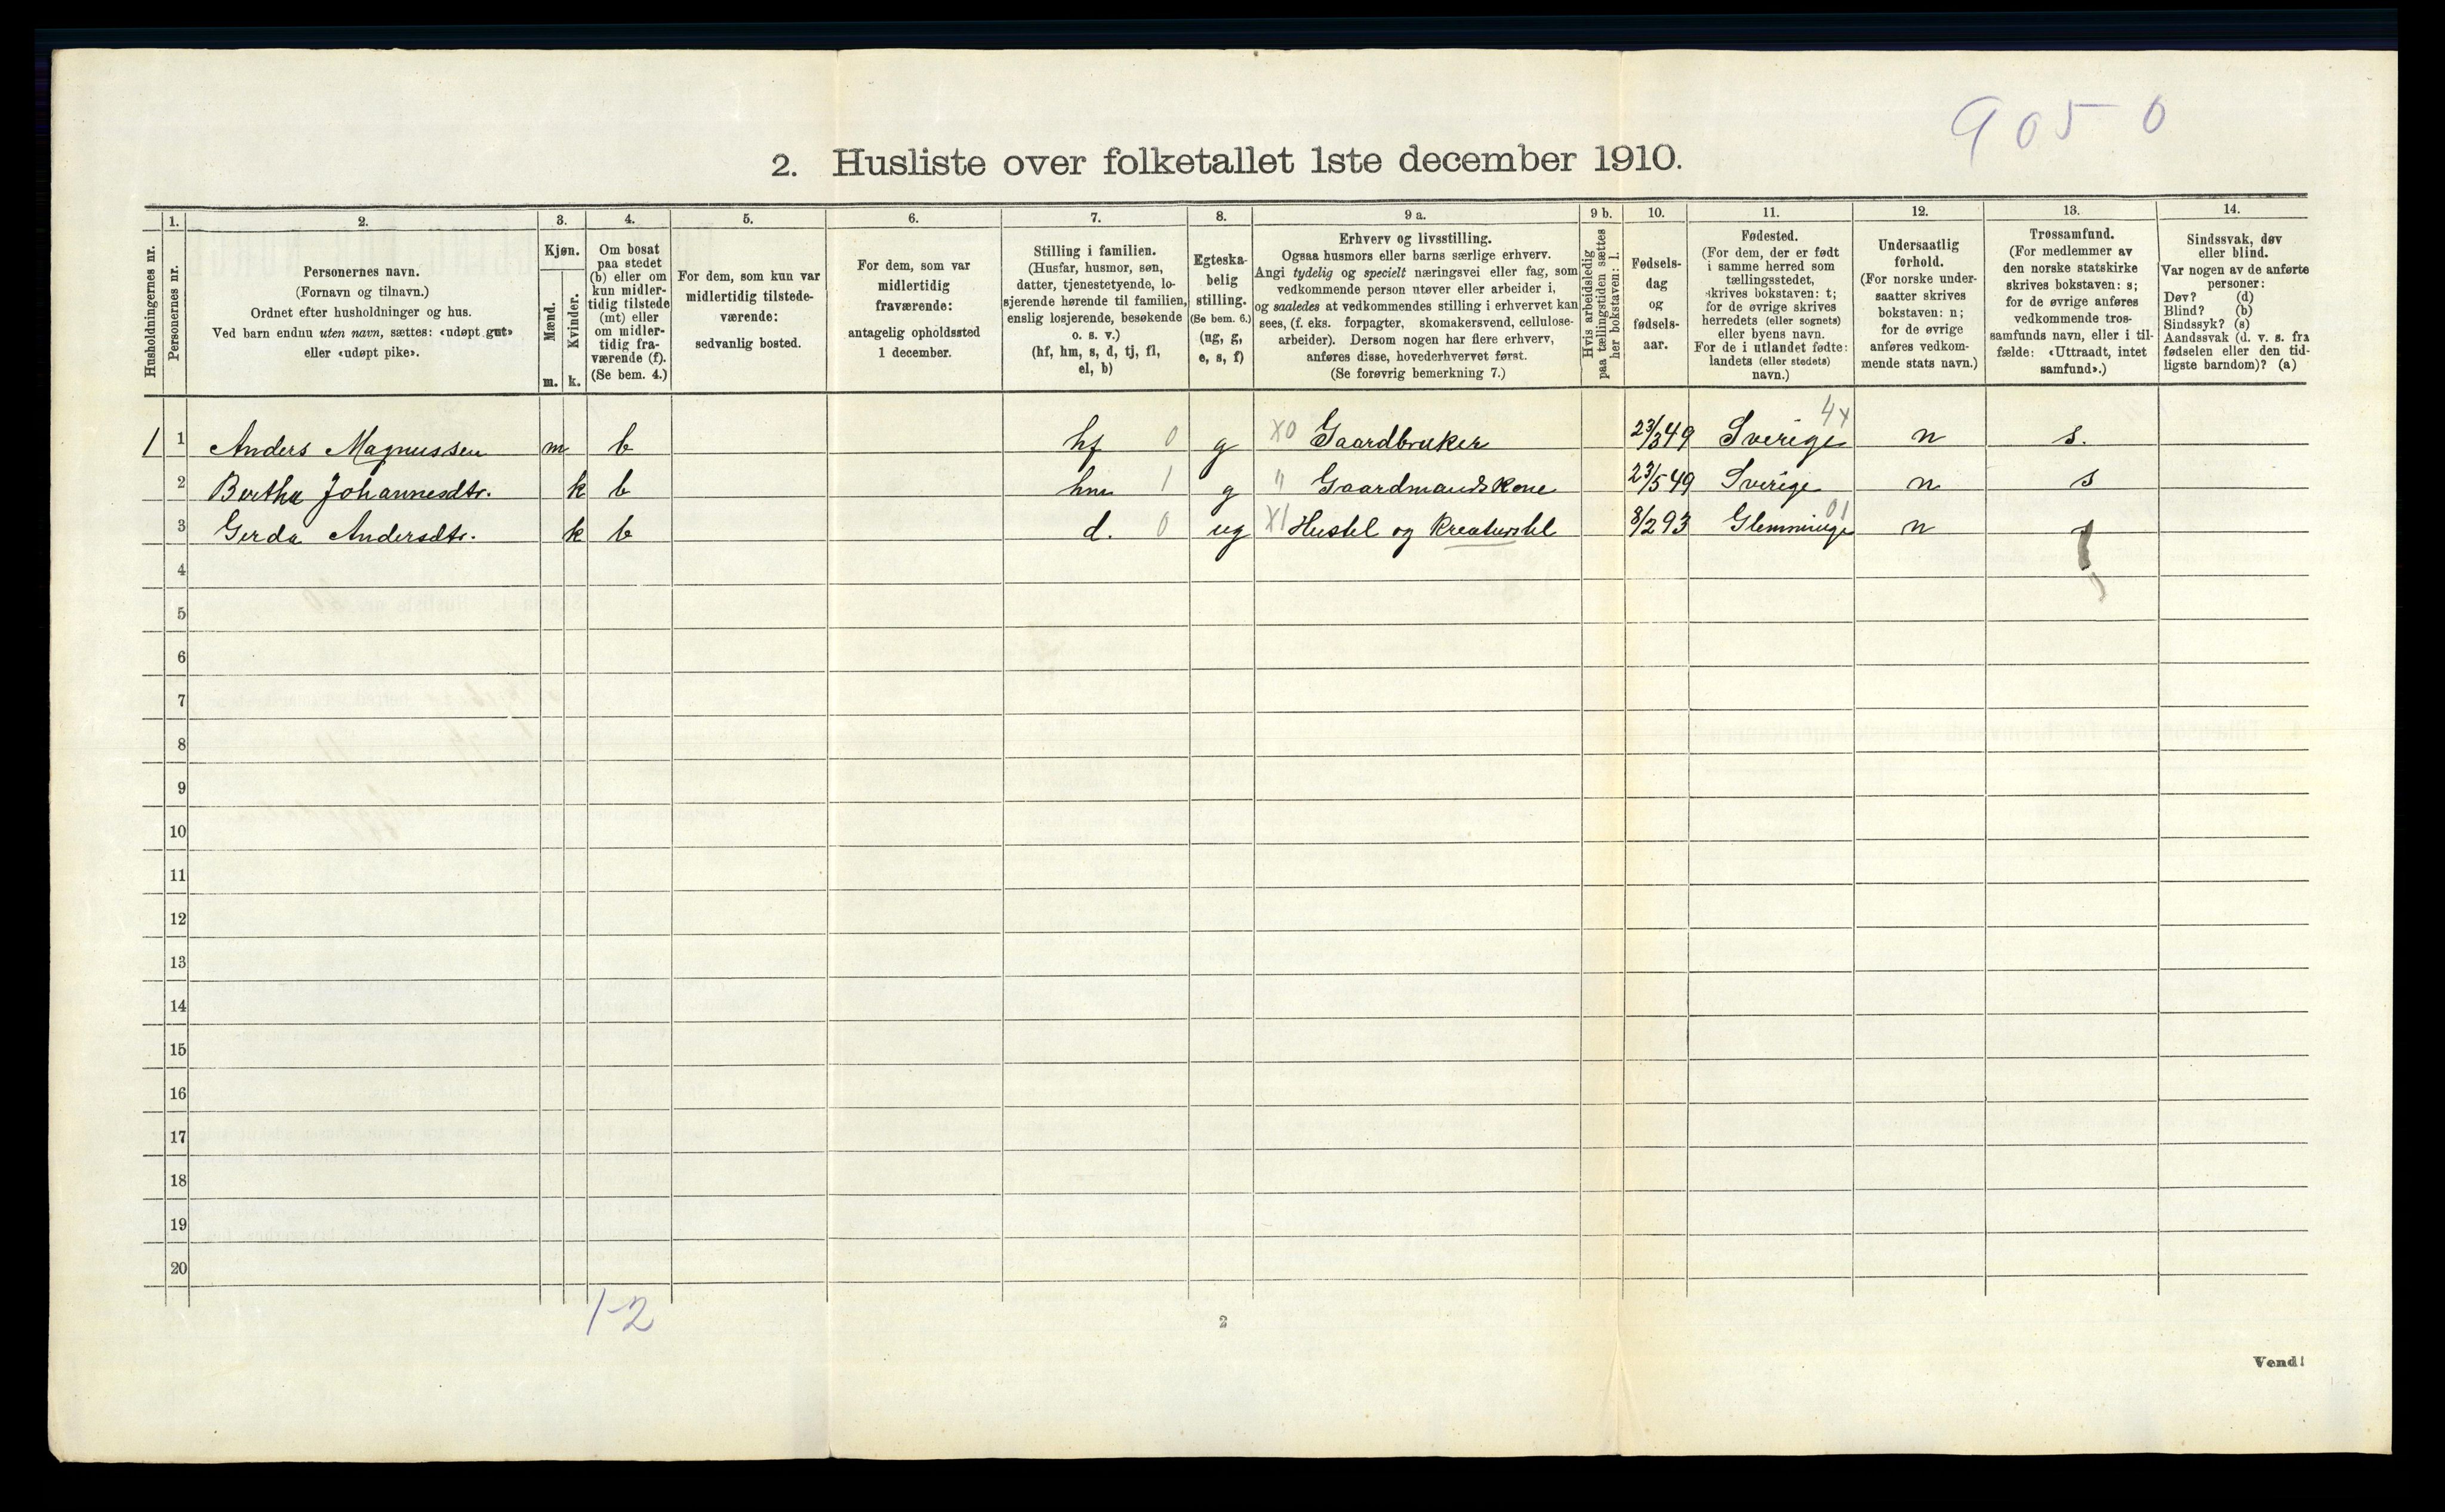 9050
2. Husliste over folketallet 1ste december 1910.
1. 2. 3. 4. 5. 6. 7. 8. 9 a. 9 b. 10. 11. 12. 13. 14.
Husholdningernes nr.
Personernes nr.
Personernes navn.
(Fornavn og tilnavn.)
Ordnet efter husholdninger og hus.
Ved barn endnu uten navn, sættes: «udøpt gut»
eller «udøpt pike».
Kjøn.
Mænd.
Kvinder.
m. k.
Om bosat
paa stedet
(b) eller om
kun midler-
tidig tilstede
(mt) eller
om midler-
tidig fra-
værende (f).
(Se bem. 4.)
For dem, som kun var
midlertidig tilstede-
værende:
sedvanlig bosted.
For dem, som var
midlertidig
fraværende:
antagelig opholdssted
1 december.
Stilling i familien.
(Husfar, husmor, søn,
datter, tjenestetyende, lo-
sjerende hørende til familien,
enslig losjerende, besøkende
o. s. v.)
(hf, hm, s, d, tj, fl,
el, b)
Egteska-
belig
stilling.
(Se bem. 6.)
(ug, g,
e, s, f)
Erhverv og livsstilling.
Ogsaa husmors eller barns særlige erhverv.
Angi tydelig og specielt næringsvei eller fag, som
vedkommende person utøver eller arbeider i,
og saaledes at vedkommendes stilling i erhvervet kan
sees, (f. eks. forpagter, skomakersvend, cellulose-
arbeider). Dersom nogen har flere erhverv,
anføres disse, hovederhvervet først.
(Se forøvrig bemerkning 7.)
Hvis arbeidsledig
paa tællingstiden sættes
her bokstaven: l.
Fødsels-
dag
og
fødsels-
aar.
Fødested.
(For dem, der er født
i samme herred som
tællingsstedet,
skrives bokstaven: t;
for de øvrige skrives
herredets (eller sognets)
eller byens navn.
For de i utlandet fødte:
landets (eller stedets)
navn.)
Undersaatlig
forhold.
(For norske under-
saatter skrives
bokstaven: n;
for de øvrige
anføres vedkom-
mende stats navn.)
Trossamfund.
(For medlemmer av
den norske statskirke
skrives bokstaven: s;
for de øvrige anføres
vedkommende tros-
samfunds navn, eller i til-
fælde: «Uttraadt, intet
samfund».)
Sindssvak, døv
eller blind.
Var nogen av de anførte
personer:
Døv? (d)
Blind? (b)
Sindssyk? (s)
Aandssvak (d. v. s. fra
fødselen eller den tid-
ligste barndom)? (a)
1 1 Anders Magnussen m b hf 0 g X0 Gaardbruker 23/3 49 Sverige 4x n s.
2 Berthe Johannesdtr. k b hm 1 g " Gaardmandskone 23/5 49 Sverige n s
3 Gerda Andersdtr. k b d. 0 ug X1 Hustel og Kreaturstel 8/2 93 Glemminge 01 n
4
5
6
7
8
9
10
11
12
13
14
15
16
17
18
19
20
1-2
2
Vend!